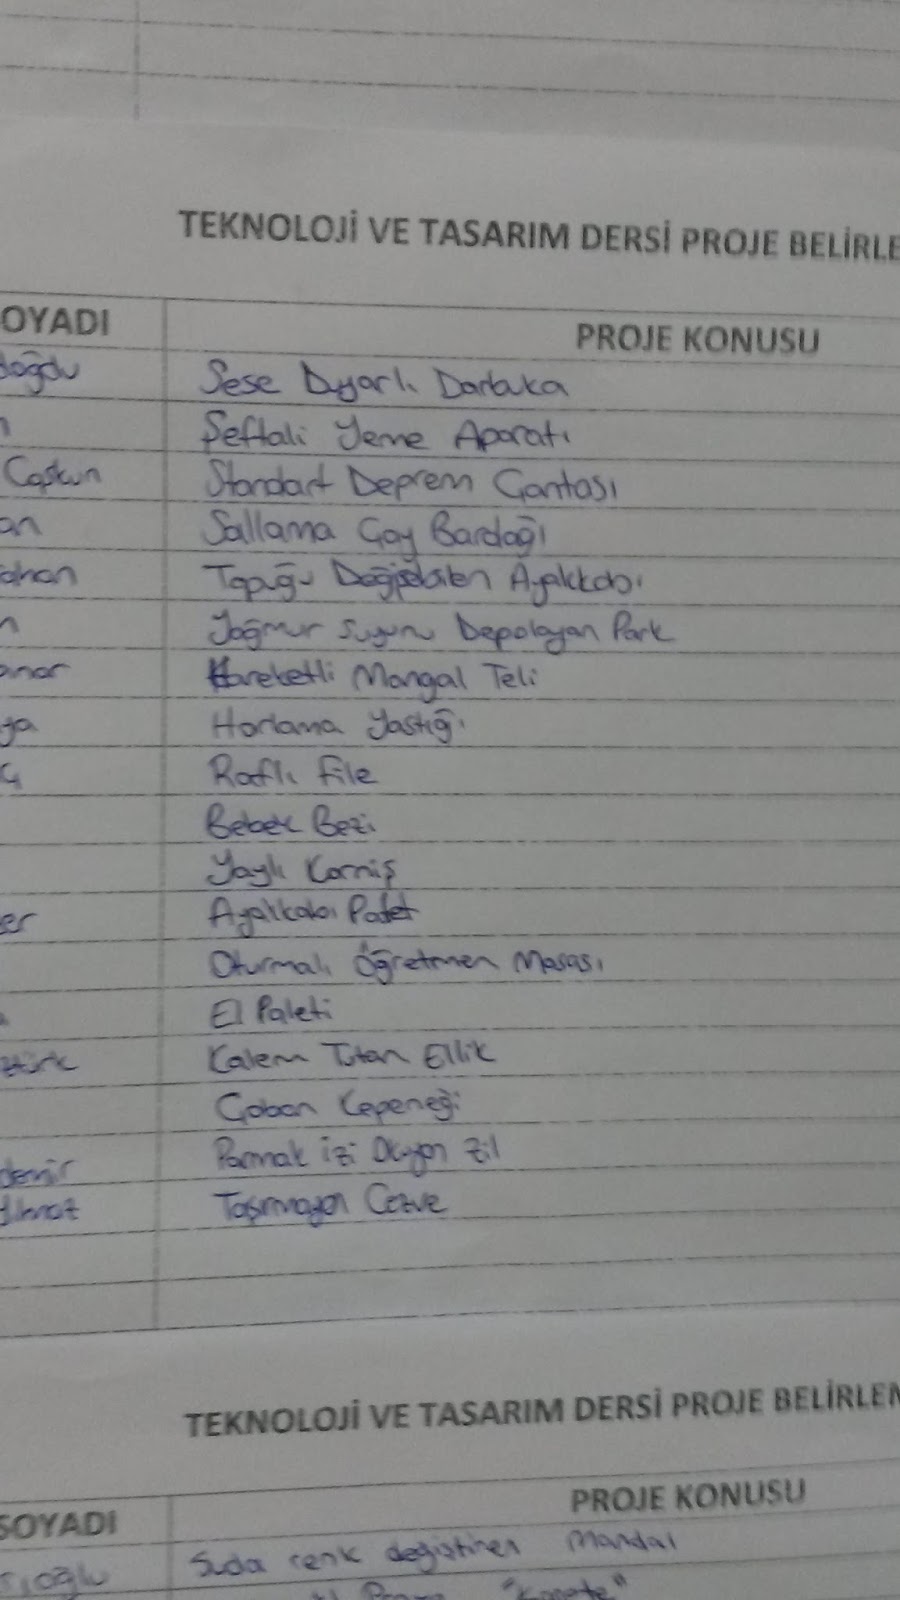 TEKNOLOJİ VE TASARIM DERSİ PROJE BELİRLE
OYADI PROJE KONUSU
doğdu Sese Duyarlı Darbuka
Şeftali Yeme Aparatı
Coşkun Standart Deprem Çantası
an Sallama Çay Bardağı
ahan Topuğu Değişebilen Ayakkabı
n Yağmur Suyunu Depolayan Park
anar Hareketli Mangal Teli
ya Horlama Yastığı
Raflı File
Bebek Bezi
Yaylı Korniş
er Ayakkabı Patet
Oturmalı Öğretmen Masası
El Paleti
türk Kalem Tutan Ellik
Çoban Kepeneği
demir Parmak İzi Okuyan Zil
Taşırmayan Cezve
TEKNOLOJİ VE TASARIM DERSİ PROJE BELİRLEM
SOYADI PROJE KONUSU
oğlu Suda renk değiştiren Mandal